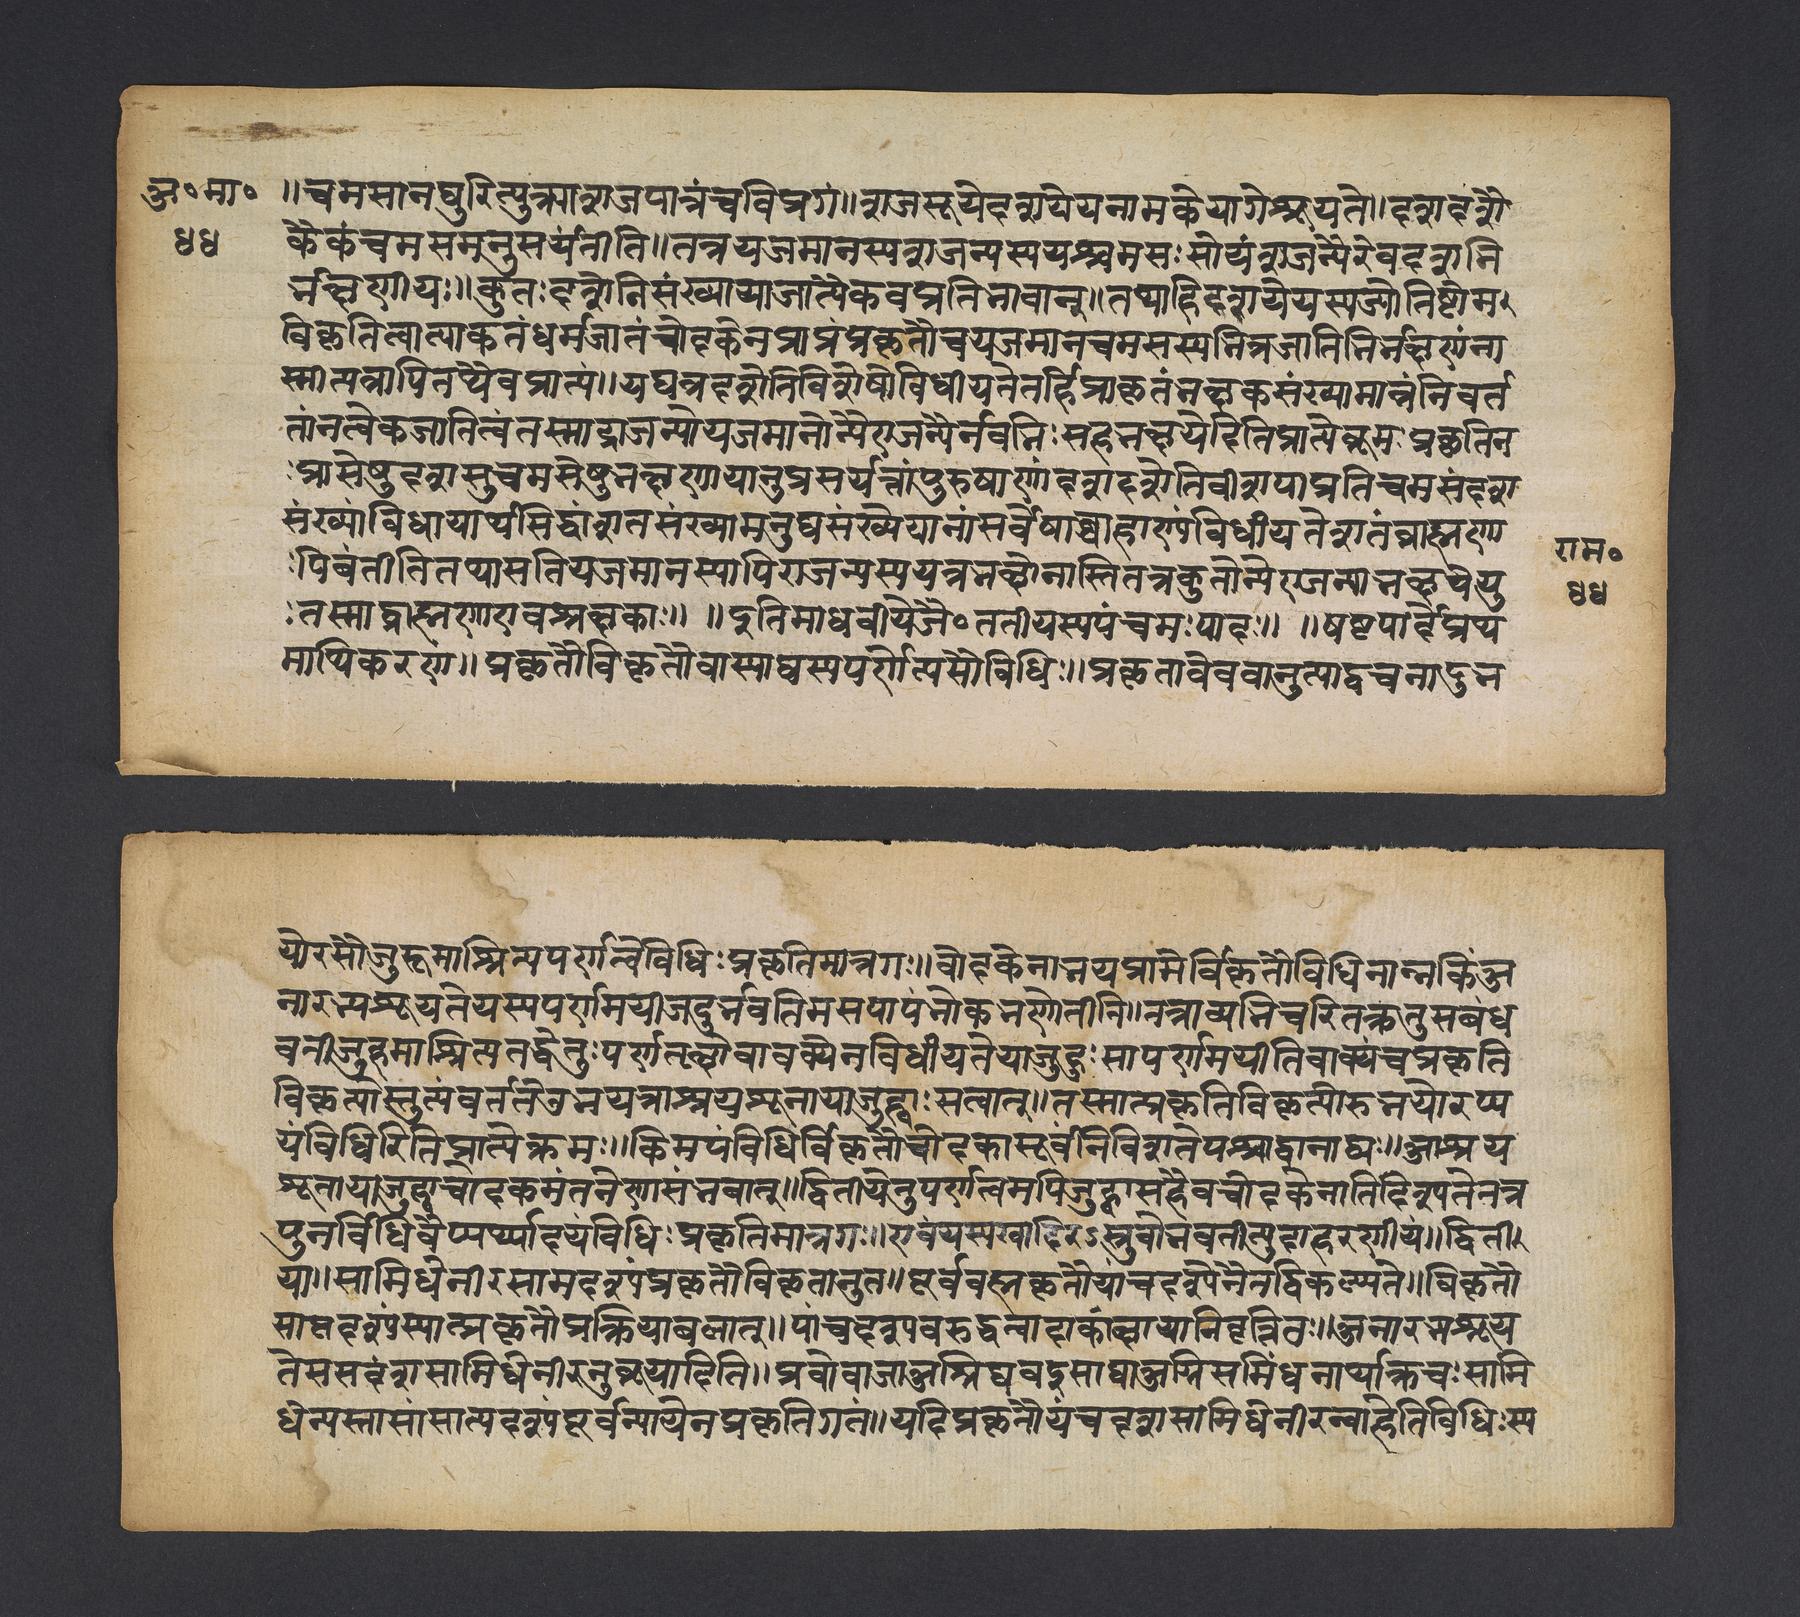 जै॰मा॰
४४
॥चमसानद्युरित्युक्त्याराजपात्रंचविप्रगं॥राजसूयेदशपेयनामकेयागेश्रूयते॥दशदशै
कैकंचमसमनुसर्यंतीति॥तत्रयजमानस्यराजन्यस्ययश्चमसः सोयंराजन्यैरेवदशभि
र्भक्षणीयः॥कुतः दशेतिसंख्यायाजात्येकवप्रतिभावात्॥तथाहिदशपेयस्यज्योतिष्टोम
विकृतित्वात्प्राकृतंधर्मजातंचोदकेनप्राप्तंप्रकृतौचयजमानचमसस्यभिन्नजातिभिर्भक्षणंना
स्मीत्यत्रापितथैवप्राप्यं॥यद्यत्रदशेतिविशेषोविधीयतेतर्हिप्राकृतंभक्षकसंख्यामात्रंनिवर्त
तांनत्वेकजातित्वंतस्माद्राजन्योयजमानोन्यैराजन्यैर्नवभिः सहभक्षयेदितिप्राप्तेब्रूमः प्रकृतित
ःप्राप्तेषुदशसुचमसेषुभक्षणायानुप्रसर्पतांपुरुषाणांदशदशेतिवीप्सयाप्रतिचमसंदश
संख्यांविधायार्थसिद्धांशतसंख्यामनुद्यसंख्येयानांसर्वेषांब्राह्मण्यंविधीयतेशतंब्राह्मणा
ःपिबंतीतितथासतियजमानस्यापिराजन्यस्ययत्रभक्षोनास्तितत्रकुतोन्येराजन्याभक्षयेयु
ःतस्माद्ब्राह्मणाएवभक्षकाः॥ ॥इतिमाधवीयेजै॰तृतीयस्यपंचमः पादः॥ ॥षष्ठपादेप्रथ
माधिकरणं॥प्रकृतौविकृतौवास्याद्यस्यपर्णेत्यसौविधिः॥प्रकृतावेववानुल्याद्वचनादुभ
राम॰
४४
योरसौजुहूमाश्रित्यपर्णत्वेविधिः प्रकृतिमात्रगः॥चोदकेनोभयप्राप्तेर्विकृतौविधिनात्रकिंअ
नारभ्यश्रूयतेयस्यपर्णमयीजुहूर्भवतिनसपापंश्लोकंशृणोतीति॥तत्राव्यभिचरितक्रतुसंबंध
वतीजुहूमाश्रित्यतद्धेतुः पर्णवृक्षोवाक्येनविधीयतेयाजुहूः सापर्णमयीतिवाक्यंचप्रकृति
विकृत्योस्तुल्यंवर्ततेउभयत्राश्रयभूतायाजुह्वाः सत्वात्॥तस्मात्प्रकृतिविकृत्योरुभयोरप्य
यंविधिरितिप्राप्तेब्रूमः॥किमयंविधिर्विकृतौचोदकात्पूर्वंनिविशतेपश्चाद्वानाद्यः॥आश्रय
भूतायाजुह्वाचोदकमंतरेणासंभवात्॥द्वितीयेतुपर्णत्वमपिजुह्वासहैवचोदकेनातिदिश्यतेतत्र
पुनर्विधिवैयर्थ्यादयंविधिः प्रकृतिमात्रगः॥एवंयस्यखादिरःस्रुवोभवतीत्युदाहरणीयं॥द्विती
या॥सामिधेनीःसप्तदशप्रकृतौविकृतावुत॥पूर्ववत्प्रकृतौपांचदश्येनैतद्विकल्प्यते॥विकृतौ
साप्तदश्यंस्यात्प्रकृतौप्रक्रियाबलात्॥पांचदश्यावरुद्धत्वादाकांक्षायानिवृत्तितः॥अनारभ्यश्रूय
तेसप्तदशसामिधेनीरनुब्रूयादिति॥प्रवोवाजाअभिद्यवइत्याद्याअग्निसमिंधनार्थाऋचः सामि
धेन्यस्तासांसाप्तदश्यंपूर्वन्यायेनप्रकृतिगतं॥यदिप्रकृतौपंचदशसामिधेनीरन्वाहेतिविधिःस्य